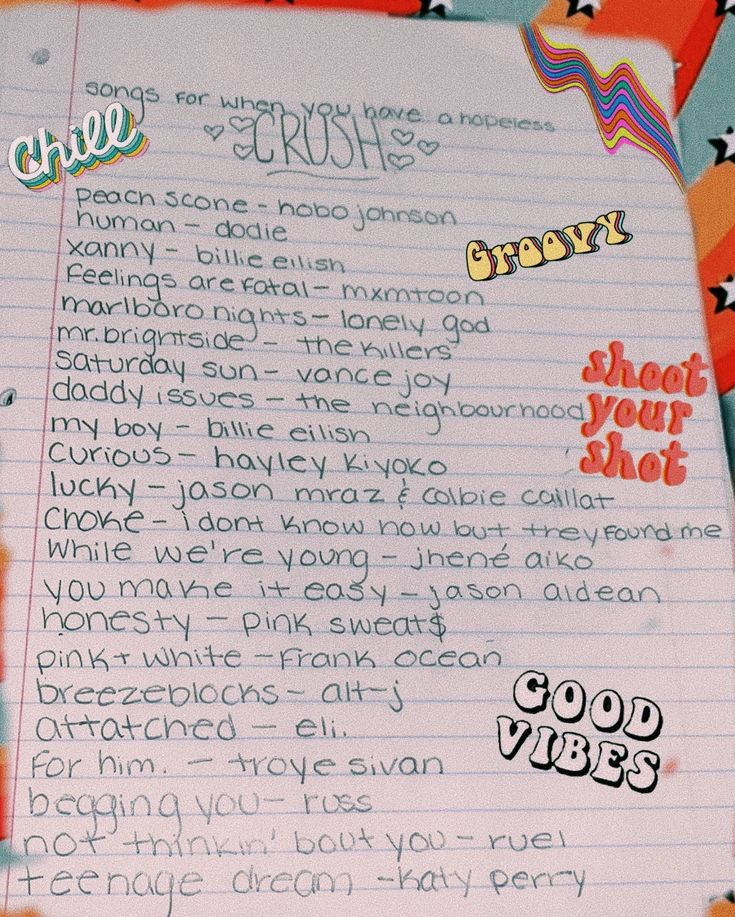 songs for when you have a hopeless
CRUSH
Chill
peach scone - hobo johnson
human - dodie
Groovy
xanny - billie eilish
feelings are fatal - mxmtoon
marlboro nights - lonely god
mr. brightside - the killers
saturday sun - vance joy
shoot
daddy issues - the neighbourhood
your
my boy - billie eilish
shot
curious - hayley kiyoko
lucky - jason mraz & colbie caillat
choke - i dont know how but they found me
while we're young - jhené aiko
you make it easy - jason aldean
honesty - pink sweat$
pink + white - frank ocean
breezeblocks - alt-j
GOOD
attatched - eli.
VIBES
for him. - troye sivan
begging you - russ
not thinkin' bout you - ruel
teenage dream - katy perry